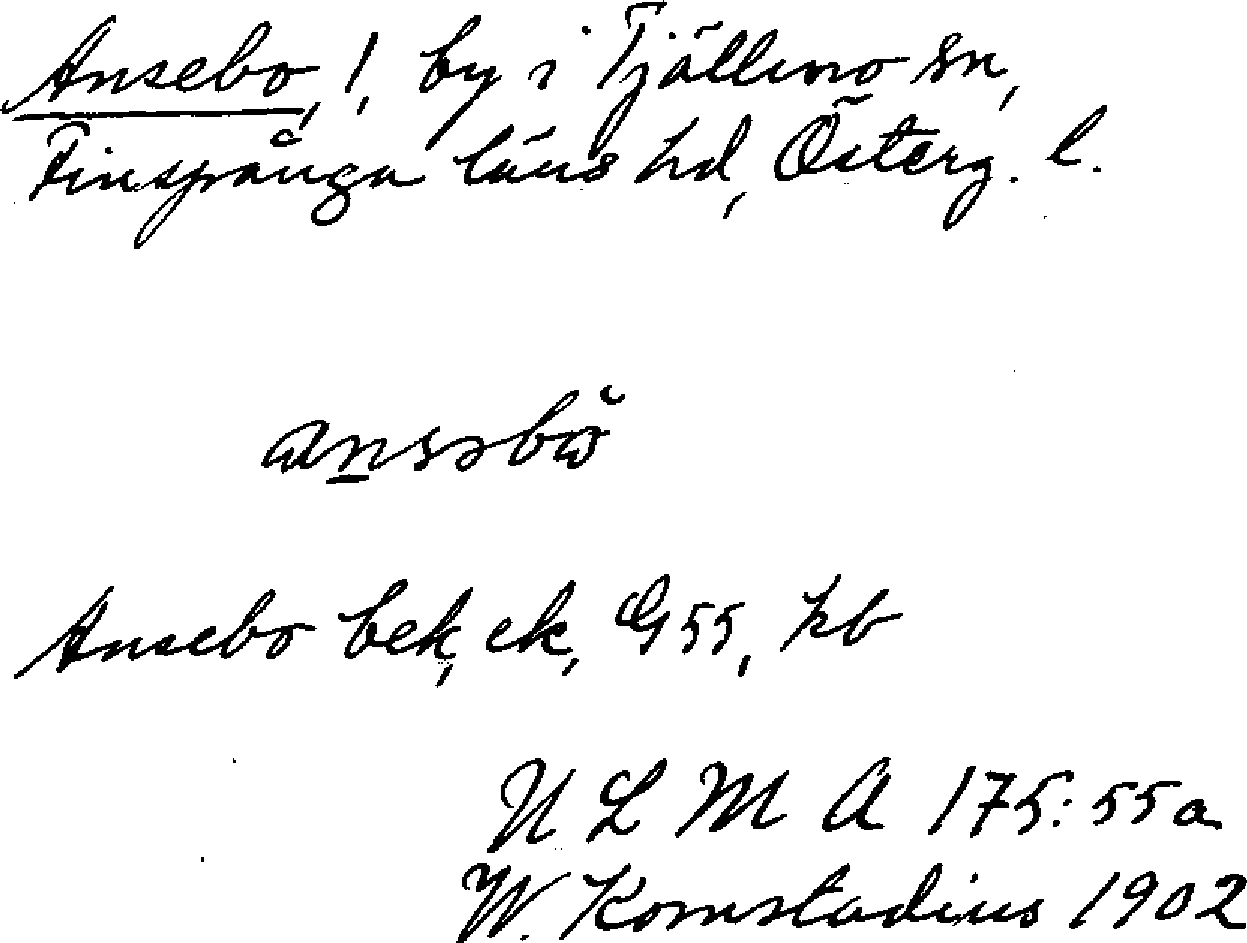 Ansebo, !, by i Tjällmo sn,
Finspånga läns hd, Österg. l.
ansəbω̆
Ansebo bek, ek, G55, kb
ULMA 175:55a
W. Kornstadius 1902